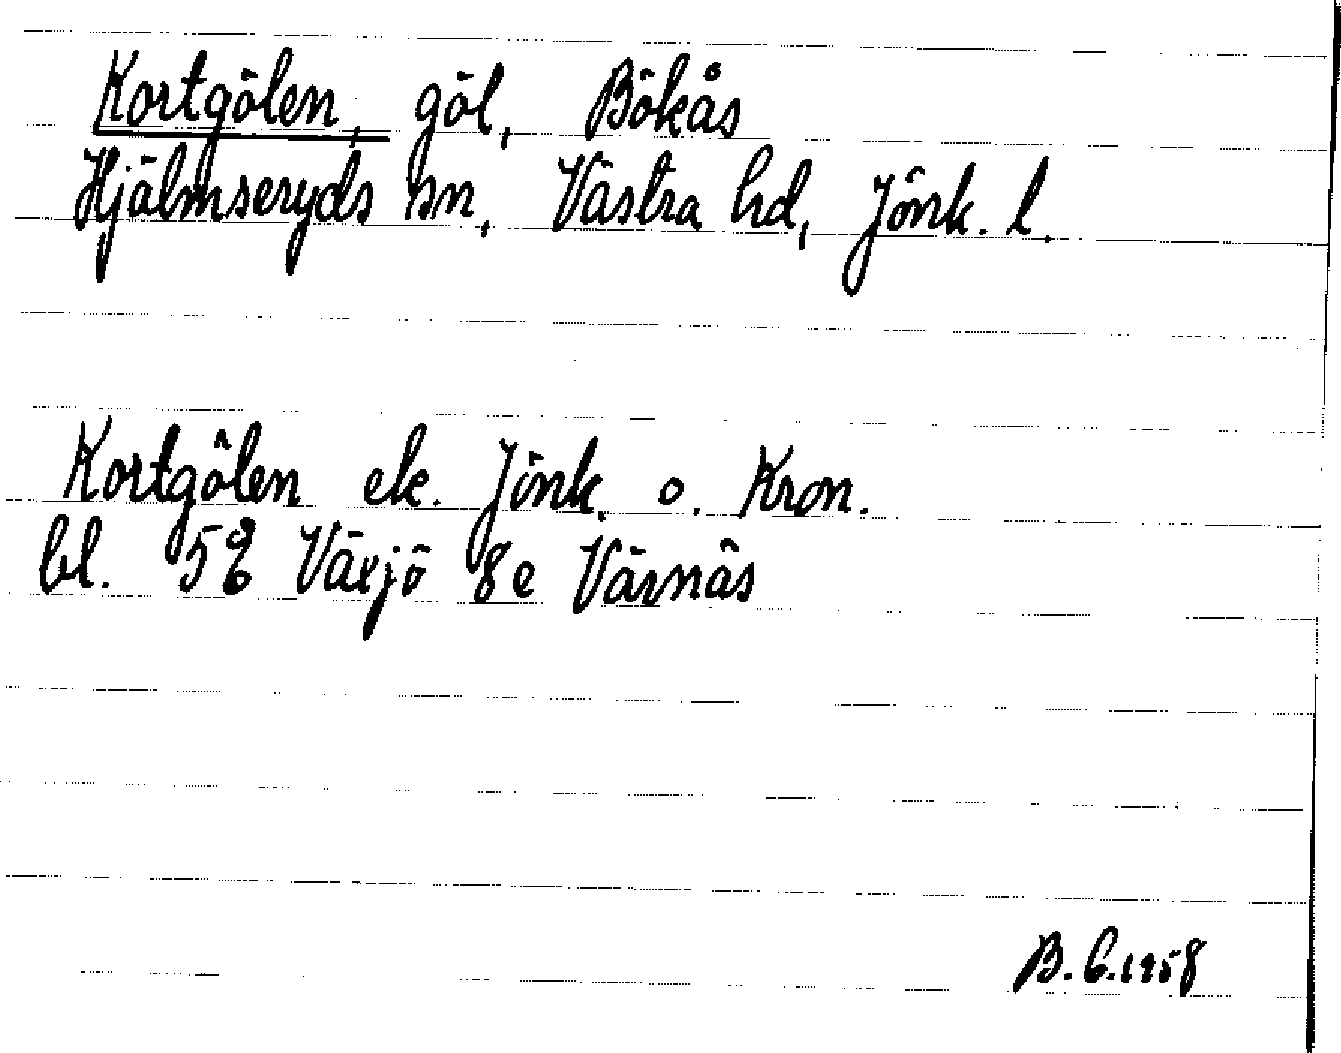 Kortgölen, göl, Bökås
Hjälmseryds sn, Västra hd, Jönk. l.
Kortgölen ek. Jönk. o. Kron.
bl. 5E Växjö 8e Värnäs
B. C. 1958